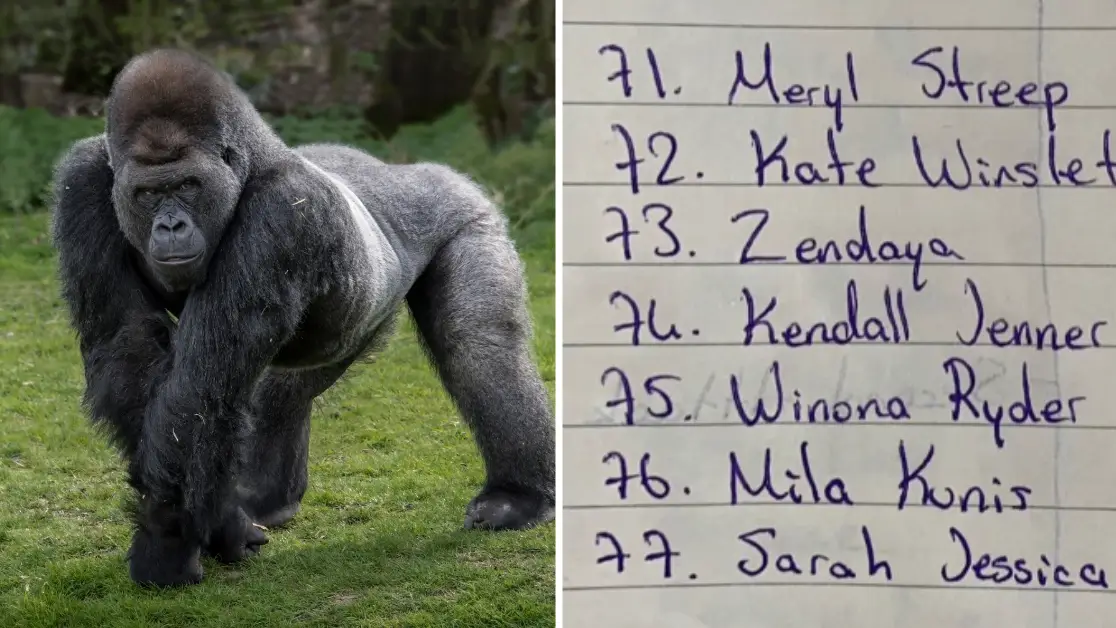 71. Meryl Streep
72. Kate Winslet
73. Zendaya
74. Kendall Jenner
75. Winona Ryder
76. Mila Kunis
77. Sarah Jessica